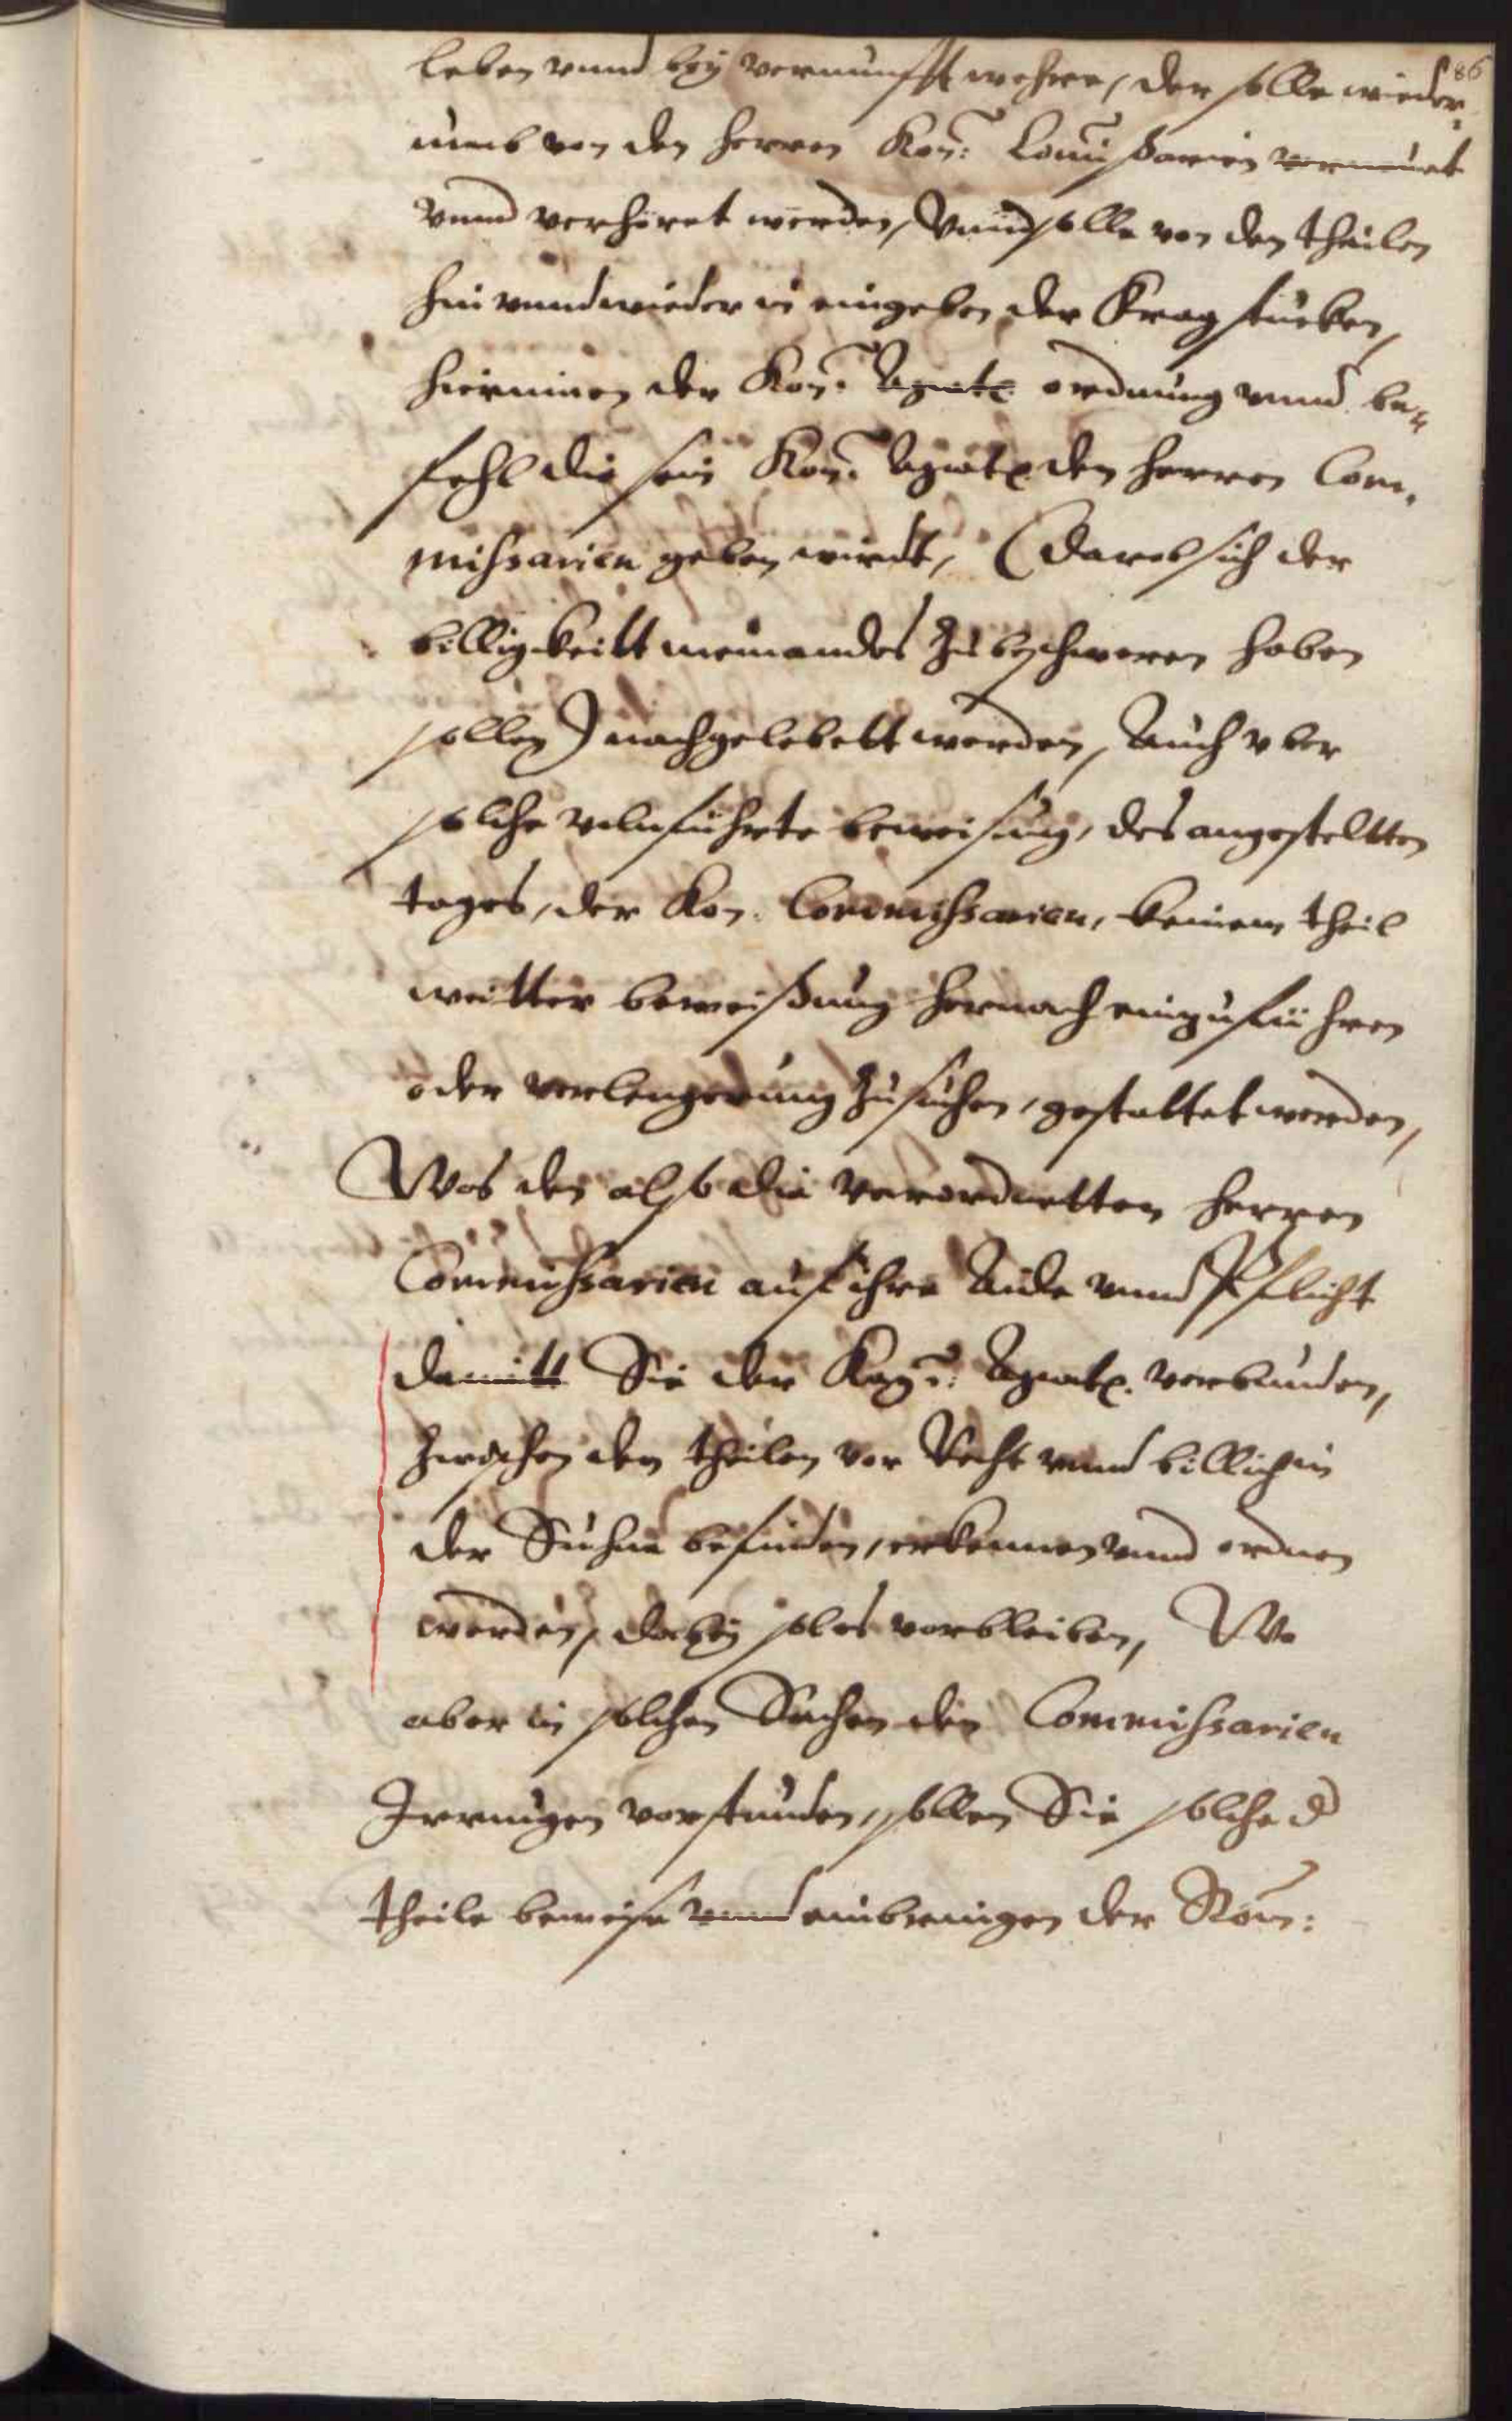 86
leben vnnd bey vernunfft wehre, der solle wieder„
umb von den herren Kay: Comissarien vernewet
vnnd verhöret werden, Vnnd solle von den theilen
hin vnnd wieder in eingeben der Frag stucken,
hierinnen der Kay: Maytt ordnung vnnd be„
fehl die sein Kay: Maytt den herren Com„
missarien geben wirdt, (Darob sich der
billigkeitt niemandes zu beschweren haben
sollen) nachgelebett werden, Auch vber
solche volnfuhrte beweisung, des angesteltten
tages, der Kay. Commissarien, keinem theil
weitter beweißung hernach einzuführen
oder verlengerung zu suchen, gestattet werden,
Was den also die verordnetten herren
Commissarien auf ihre Aide vnnd Pflicht
damitt Sie der Kay: Maytt. verbunden,
zwischen den theilen vor Recht vnnd billich in
der Suhne befinden, erkennen vnnd ordnen
werden, dabey sol es vorbleiben, Wo
aber in solchen Sachen den Commissarien
Irrungen vorstunden, sollen Sie solche d
theile beweise vnnd einbringen der Röm: